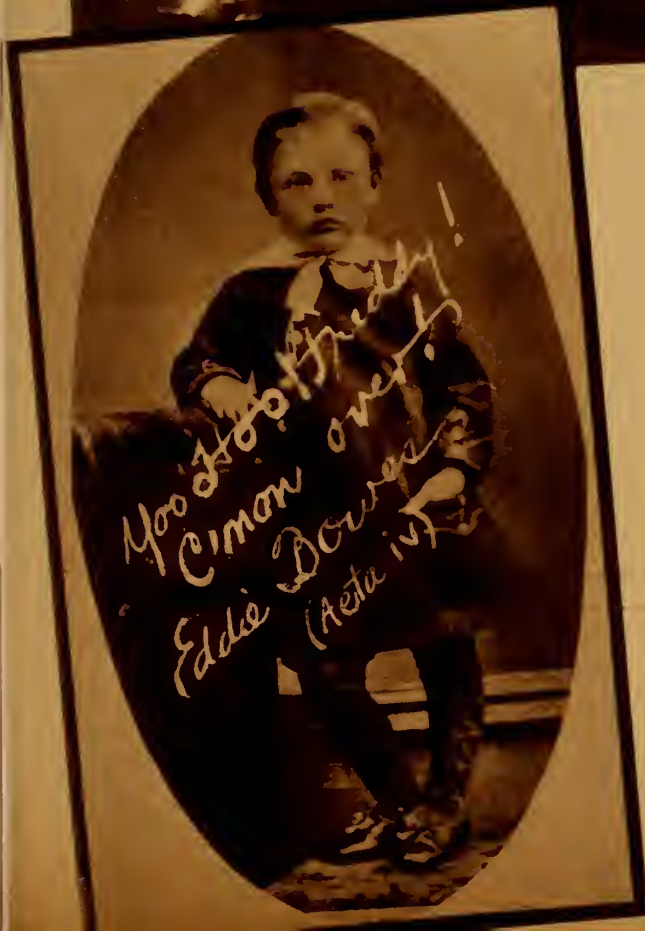 Yoo Hoo Freddy!
C'mon over!
Eddie Bowes
(Aeta iv)